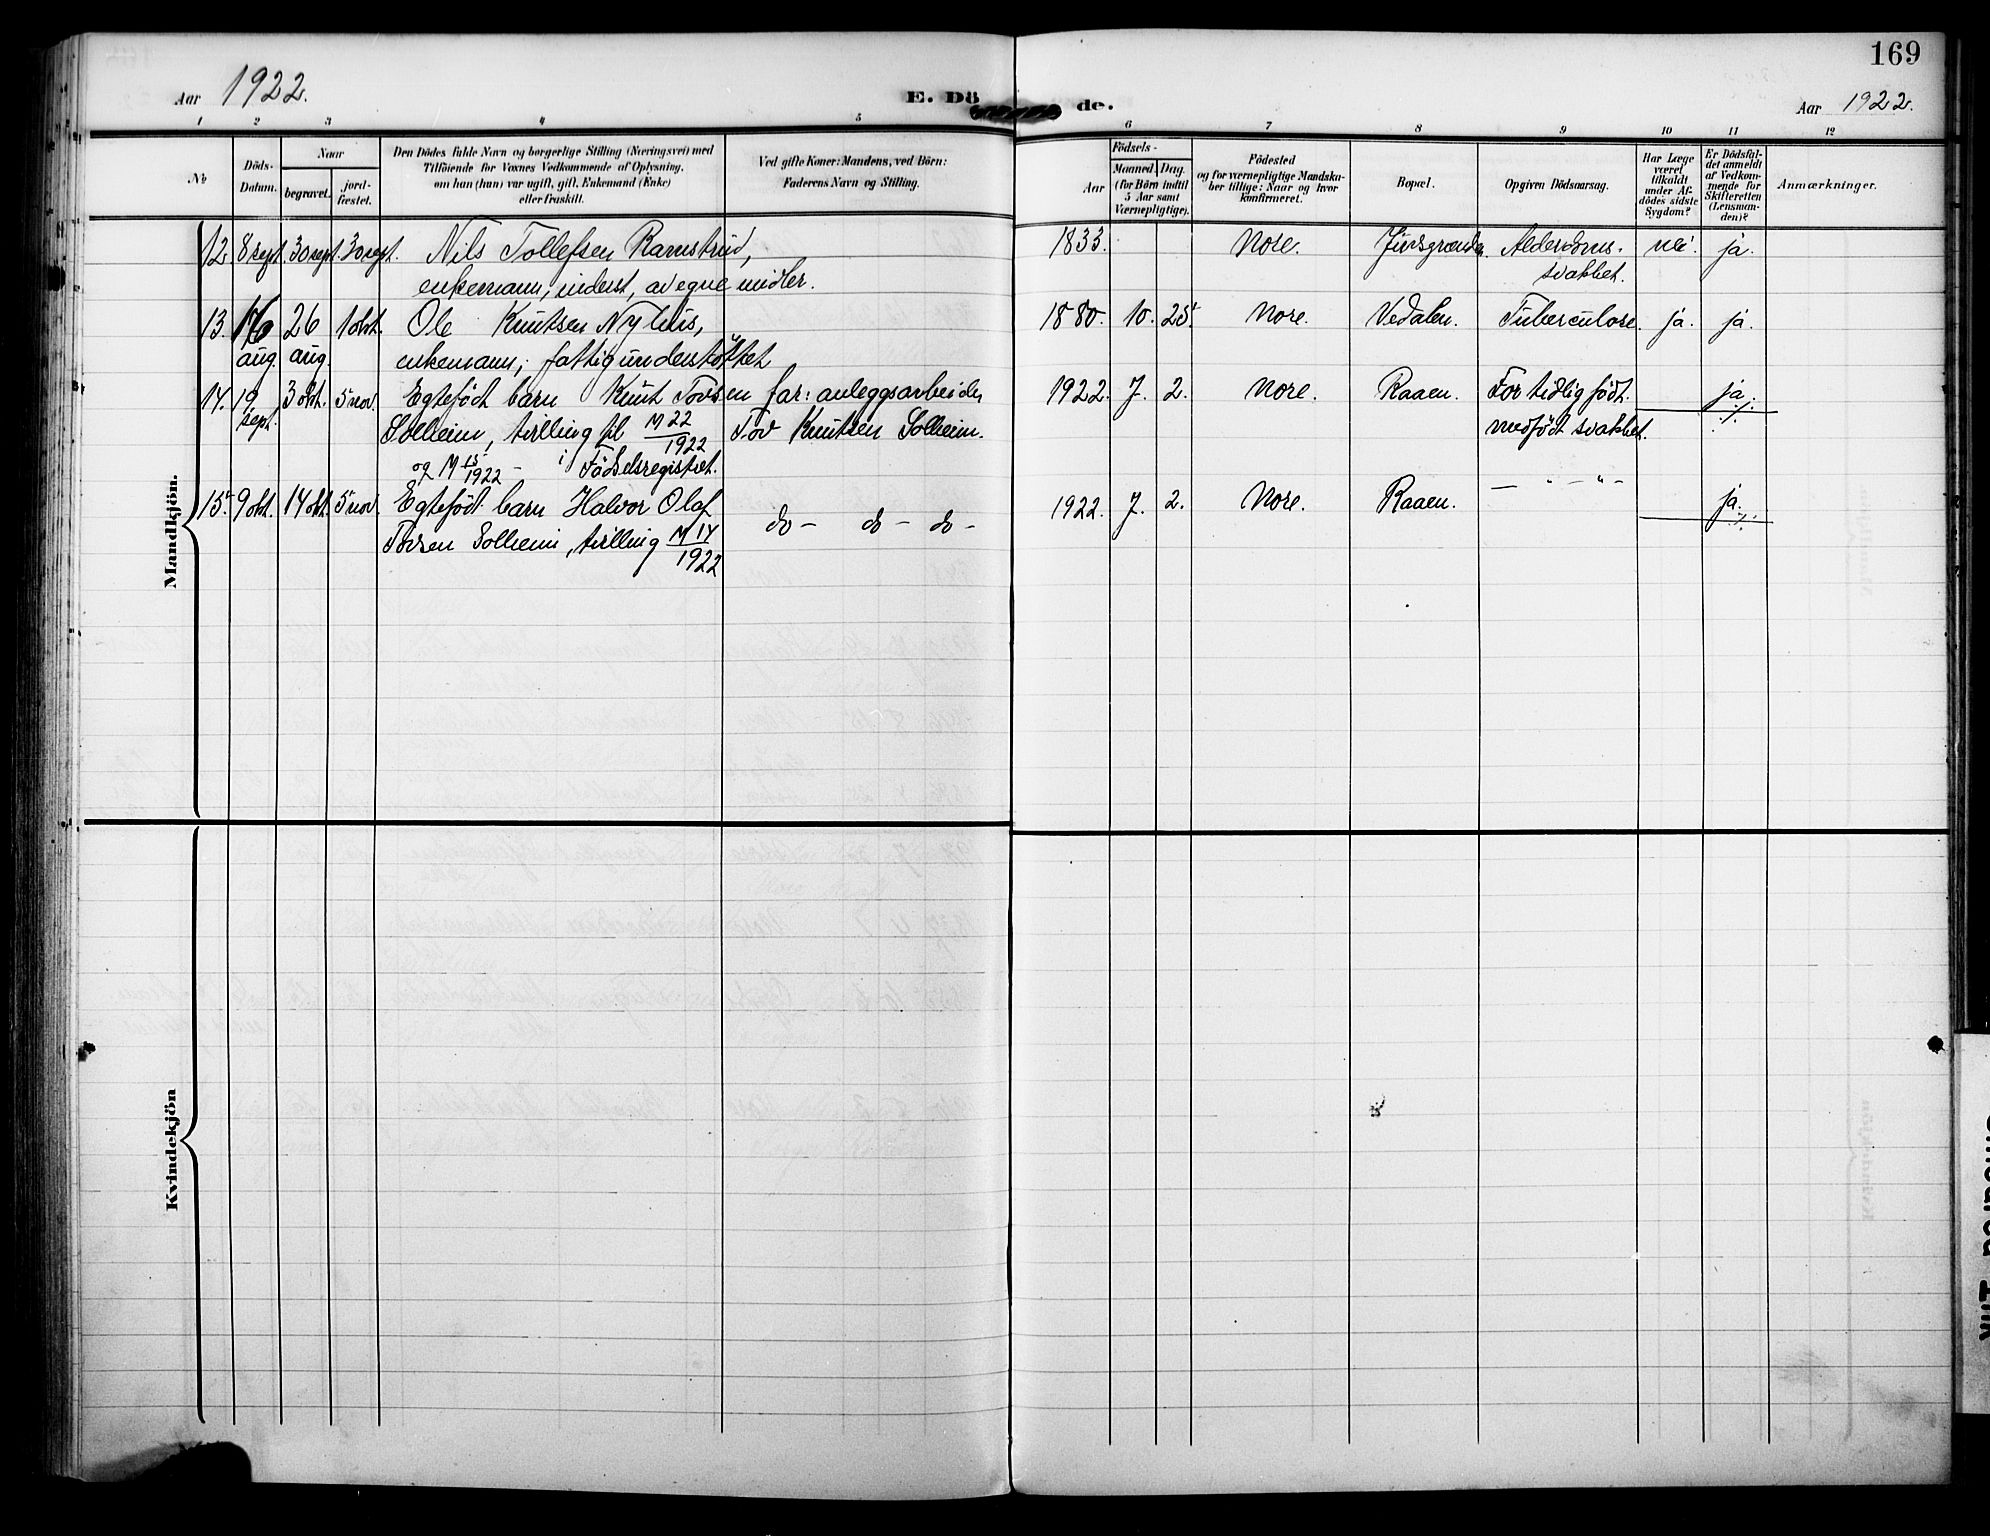 169
Aar 1922.
E. Dö de.
Aar 1922.
1 2 3 4 5 6 7 8 9 10 11 12
No
Döds-
Datum.
Naar
begravet.
jord-
fæstet.
Den Dödes fulde Navn og borgerlige Stilling (Næringsvei) med
Tilföiende for Voxnes Vedkommende af Oplysning,
om han (hun) var ugift, gift, Enkemand (Enke)
eller fraskilt.
Ved gifte Koner: Mandens, ved Börn:
Faderens Navn og Stilling.
Födsels-
Aar
Maaned. Dag.
(for Börn indtil
5 Aar samt
Værnepligtige).
Födested
og for værnepligtige Mandska-
ber tillige: Naar og hvor
konfirmeret.
Bopæl.
Opgiven Dödsaarsag.
Har Læge
været
tilkaldt
under Af-
dödes sidste
Sygdom?
Er Dödsfal-
det anmeldt
af Vedkom-
mende for
Skifteretten
(Lensman-
den)?
Anmærkninger.
Mandkjön.
12 8 sept. 30 sept. 30 sept. Nils Tollefsen Ramstrud, 1833. Nore. Alderdoms- nei. ja.
enkemann, inderst, av egne midler. svakhet.
13. 16 26 1 okt. Ole Knutsen Nyhus, 1880. 10. 25. Nore. Vedalen. Tuberculose. ja. ja.
aug. aug. enkemann, fattigunderstöttet
14. 19 3 okt. 5 nov. Egtefödt barn Knut Tovsen far: anleggsarbeider 1922. 7. 2. Nore. Raaen. For tidlig födt. ja.
sept. Solheim, trilling pl M 22/1922 Tov Knutsen Solheim. medfödt svakhet. ./.
og M 15/1922 - i Födselsregistret.
15. 9 okt. 14 okt. 5 nov. Egtefödt barn Halvor Olaf do - do - do - 1922. 7. 2. Nore. Raaen. — " — " — ja. ./.
Tovsen Solheim, trilling M 14/1922
Kvindekjön